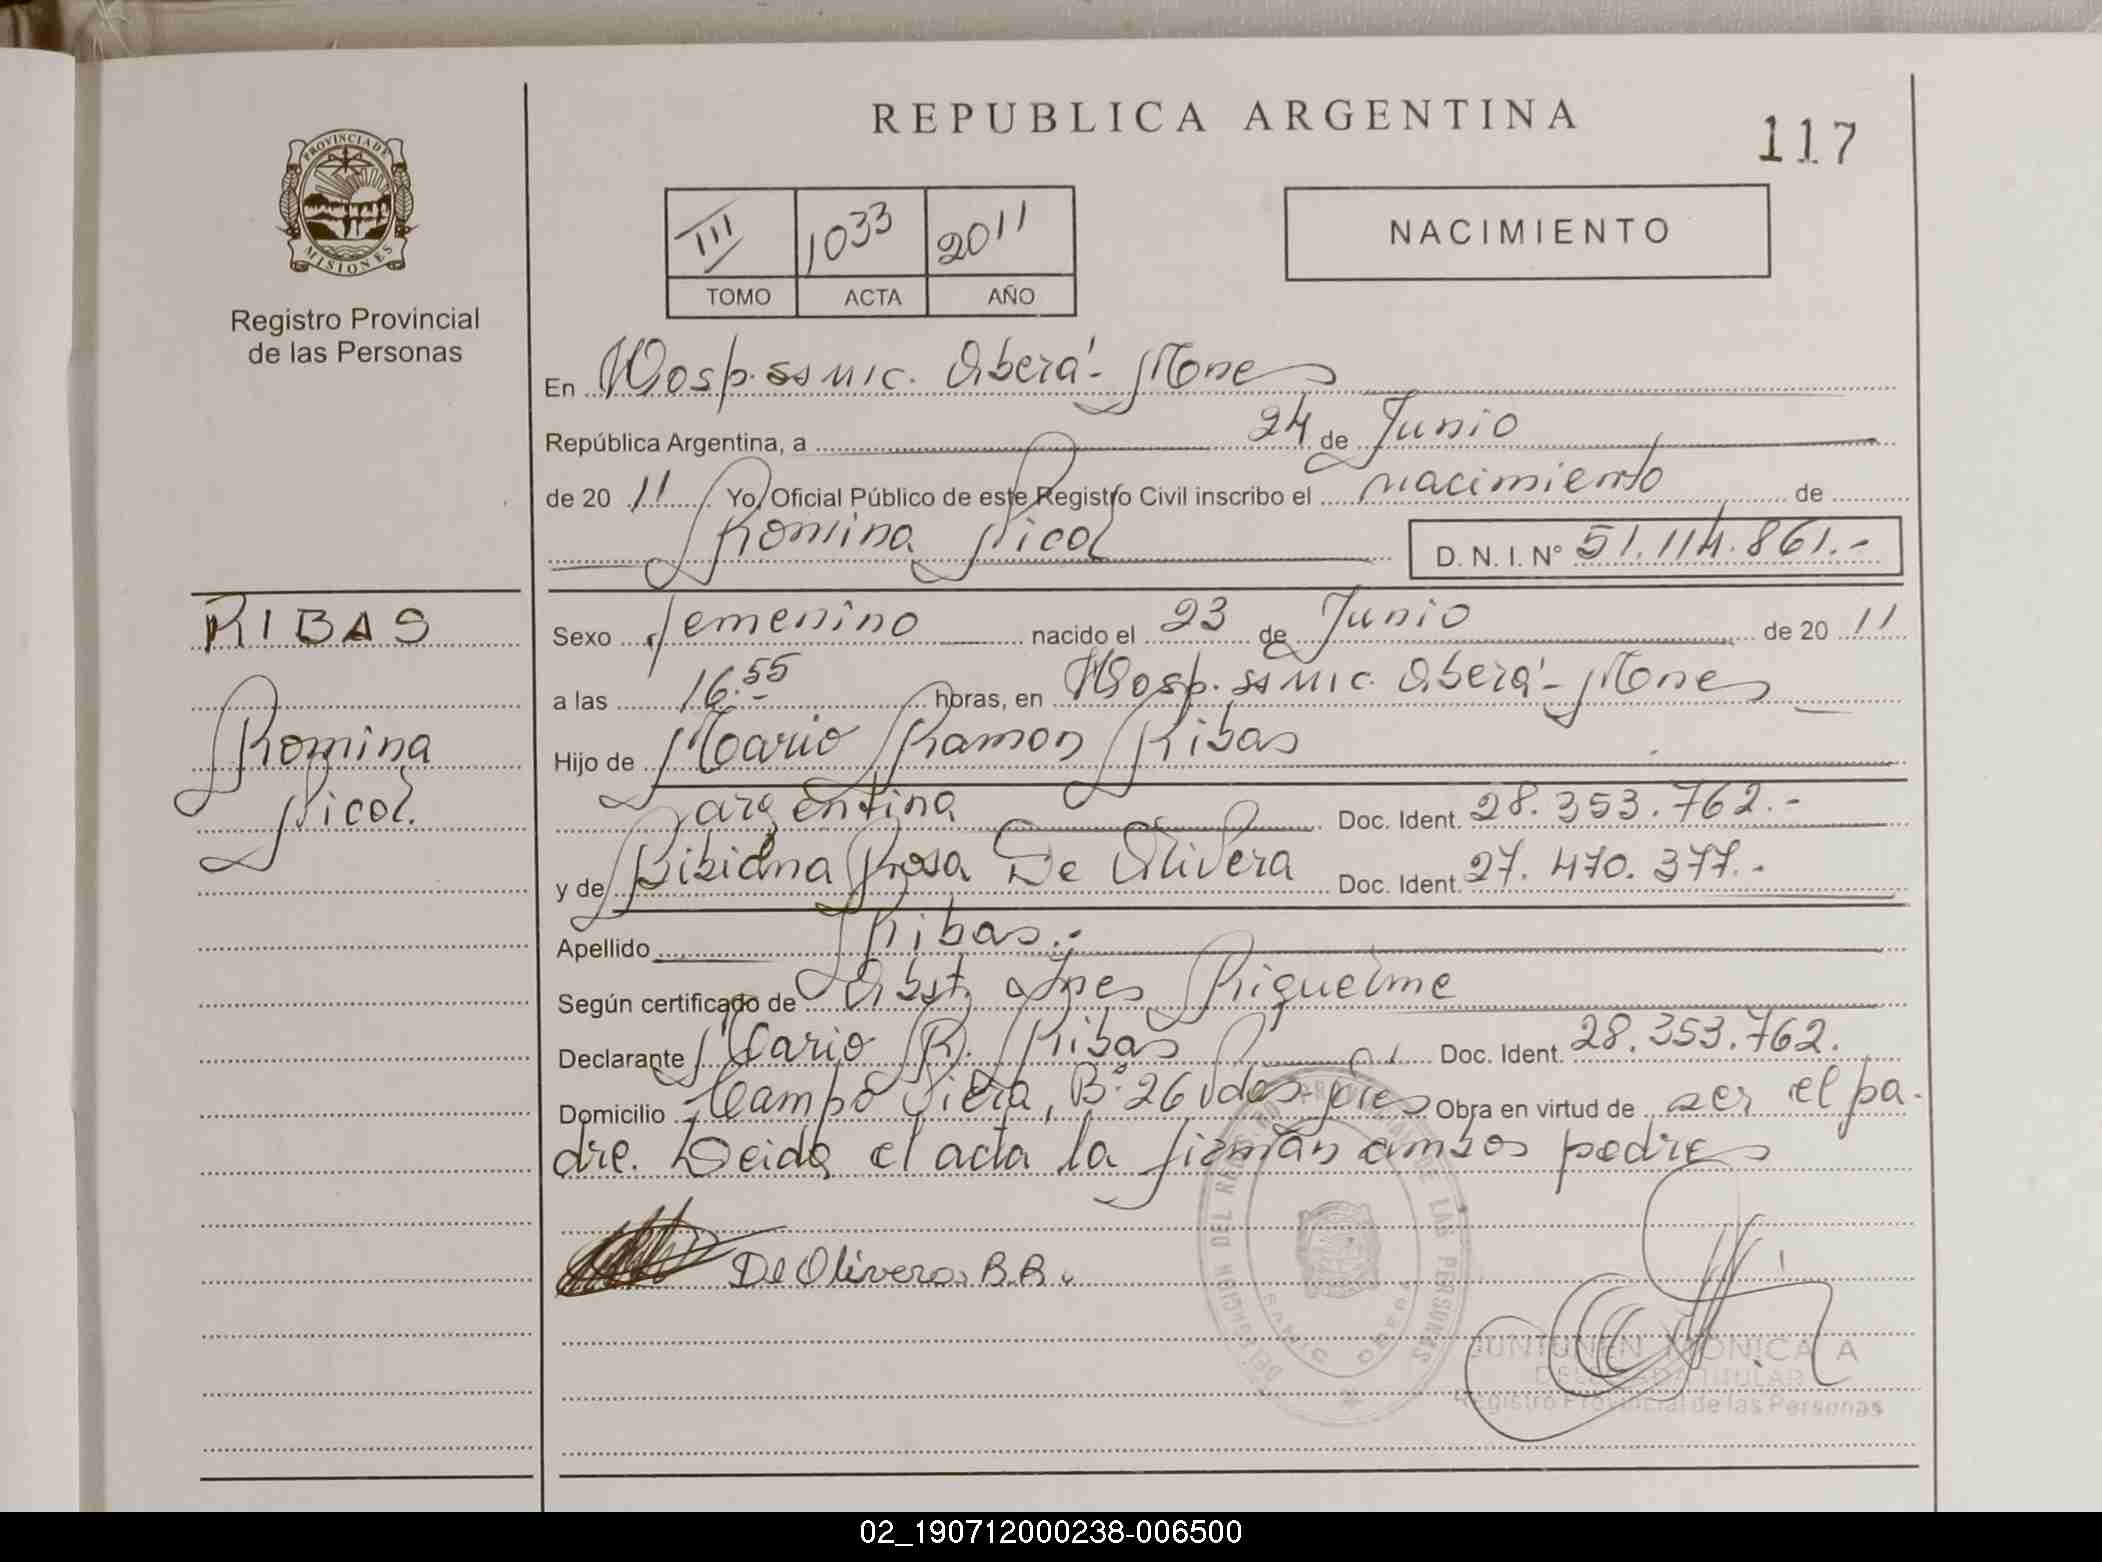 REPUBLICA ARGENTINA
117
PROVINCIA DE
MISIONES
Registro Provincial
de las Personas
III 1033 2011
TOMO ACTA AÑO
NACIMIENTO
En Hosp. SSMIC. Oberá - Mnes
República Argentina, a 24 de Junio
de 2011 Yo, Oficial Público de este Registro Civil inscribo el nacimiento de
Romina Nicol D. N. I. N° 51.114.861.-
RIBAS
Romina
Nicol.
Sexo femenino nacido el 23 de Junio de 2011
a las 16.55 horas, en Hosp. SSMIC. Oberá - Mnes
Hijo de Mario Ramon Ribas
argentina Doc. Ident. 28.353.762.-
y de Bibiana Rosa De Olivera Doc. Ident. 27.470.377.-
Apellido Ribas.-
Según certificado de Obst. Ines Riquelme
Declarante Mario R. Ribas Doc. Ident. 28.353.762.
Domicilio Campo Viera, B° 26 Vdas Obra en virtud de ser el pa-
dre. Leida el acta la firman ambos padres
De Olivera B.R.
DEL REGISTRO PROVINCIAL DE LAS PERSONAS
JUNTUNEN MONICA A
DELEGADA TITULAR
Registro Provincial de las Personas
02_190712000238-006500